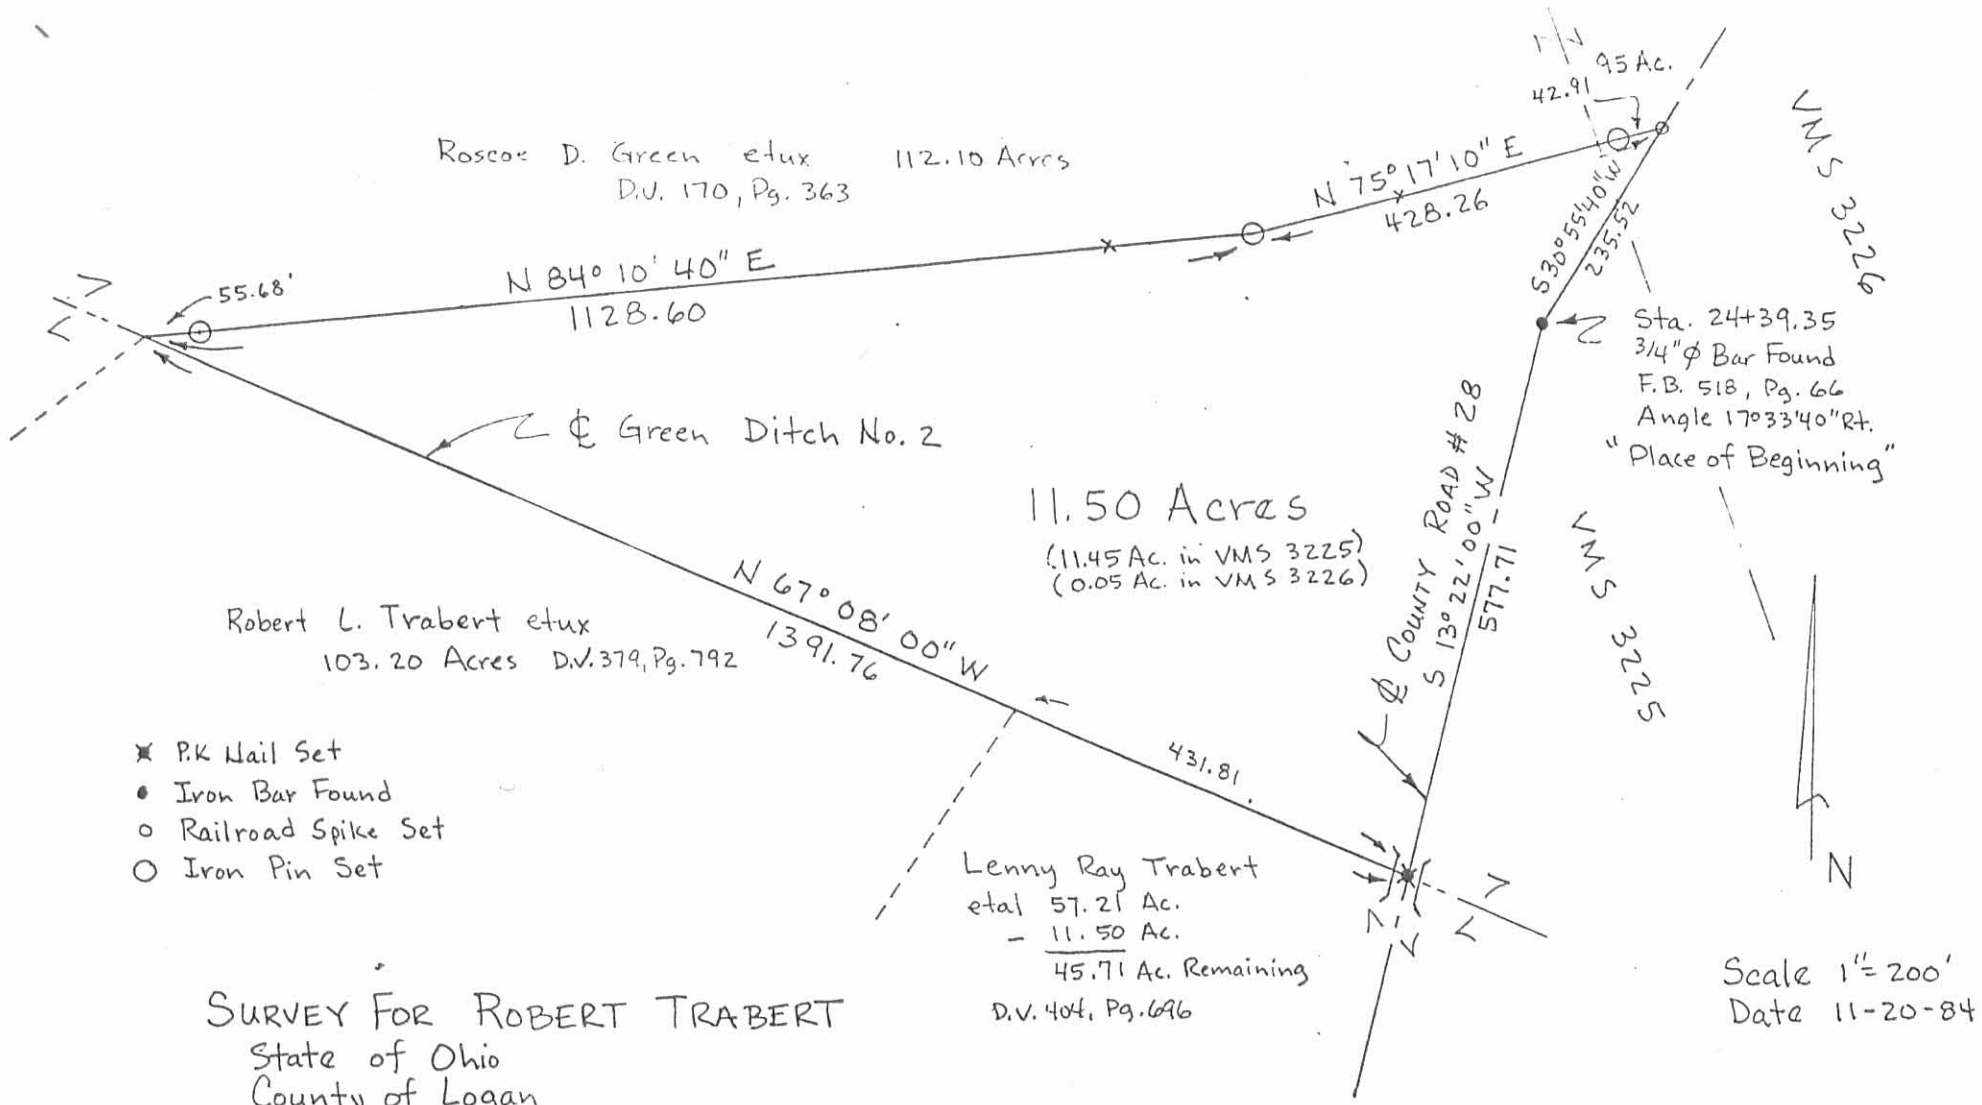 95 Ac.
42.91
Roscoe D. Green etux 112.10 Acres
D.V. 170, Pg. 363
N 75° 17' 10" E
428.26
VMS 3226
S 30° 55' 40" W
235.52
N 84° 10' 40" E
1128.60
55.68'
Sta. 24+39.35
3/4"ϕ Bar Found
F.B. 518, Pg. 66
Angle 17°33'40" Rt.
"Place of Beginning"
℄ Green Ditch No. 2
11.50 Acres
(11.45 Ac. in VMS 3225)
(0.05 Ac. in VMS 3226)
℄ COUNTY ROAD # 28
S 13° 22' 00" W
577.71
VMS 3225
N 67° 08' 00" W
1391.76
Robert L. Trabert etux
103.20 Acres D.V. 379, Pg. 792
431.81
P.K Nail Set
Iron Bar Found
Railroad Spike Set
Iron Pin Set
Lenny Ray Trabert
etal 57.21 Ac.
- 11.50 Ac.
45.71 Ac. Remaining
D.V. 404, Pg. 696
N
Scale 1"= 200'
Date 11-20-84
SURVEY FOR ROBERT TRABERT
State of Ohio
County of Logan